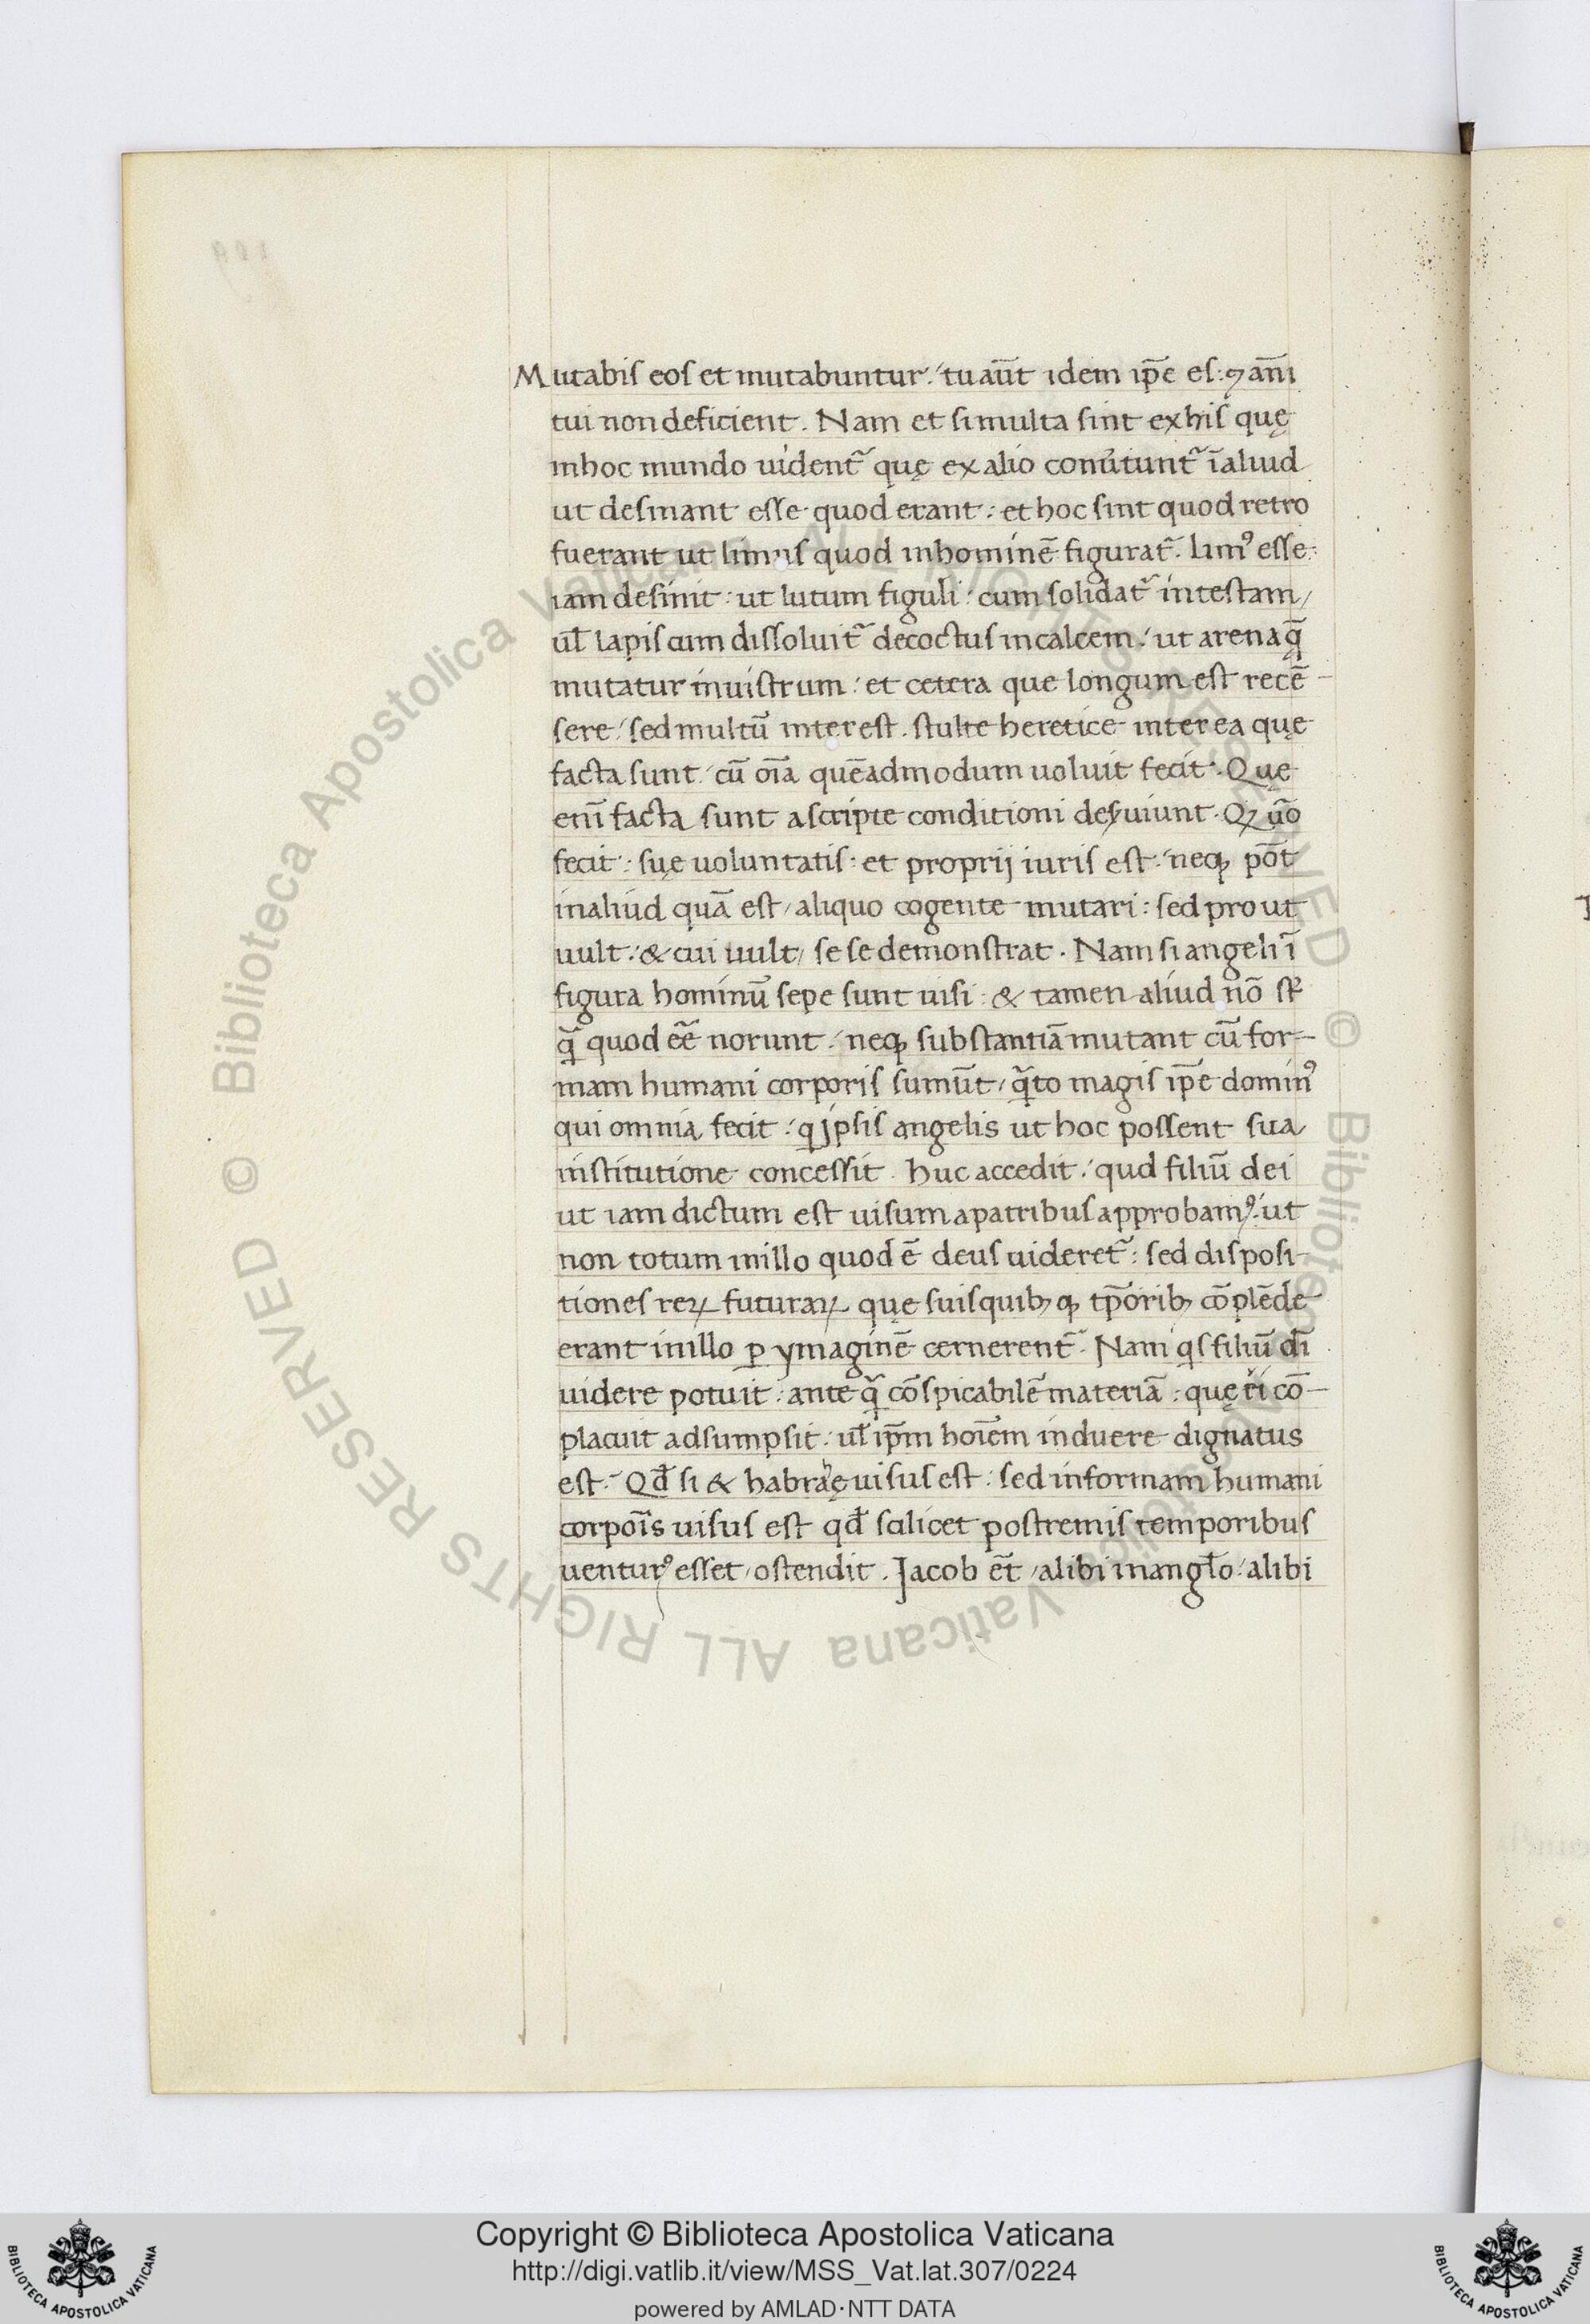 Mutabis eos et mutabuntur : tu aūt idem ip̄e es : ⁊ ann̄i
tui non deficient . Nam et si multa sint ex his quę
in hoc mundo uident᷑ quę ex alio conũtunt᷑ ī aliud
ut desinant esse quod erant : et hoc sint quod retro
fuerant ut limus quod in hominē figurat᷑ . limꝰ esse :
iam desinit : ut lutum figuli : cum solidat᷑ in testam /
ul̄ lapis cum dissoluit᷑ decoctus in calcem : ut arena q̄
mutatur in uistrum : et cetera que longum est recē
sere : sed multū interest . stulte heretice inter ea quę
facta sunt : cū oīa quēadmodum uoluit fecit . Quę
enī facta sunt ascripte conditioni deseruiunt . Qꝫ ūo
fecit : suę uoluntatis : et proprij iuris est : neqꝫ pōt
in aliud quā est / aliquo cogente mutari : sed prout
uult : & cui uult / se se demonstrat . Nam si angeli ī
figura hominū sepe sunt uisi : & tamen aliud nō st̄
q̄ quod eē̄ norunt : neqꝫ substantiā mutant cū for-
mam humani corporis sumūt / q̄to magis ip̄e dominꝰ
qui omnia fecit : q jpsis angelis ut hoc possent sua
institutione concessit . huc accedit : qud filiū dei
ut iam dictum est uisum a patribus approbamꝰ : ut
non totum in illo quod ē deus uideret᷑ : sed disposi-
tiones reꝝ futuraꝝ quę suis quibꝫqꝫ tp̄oribꝫ cōplēde
erant in illo ꝑ ymaginē cernerent᷑ . Nam qis filiū dī
uidere potuit : ante q̄ cōspicabilē materiā : quę ei cō-
placuit adsumpsit : ul̄ ip̄m hoīem induere dignatus
est . Qd̄ si & habrahę uisus est : sed in formam humani
corpoīs uisus est qd̄ scilicet postremis temporibus
uenturꝰ esset / ostendit . Jacob et̄ / alibi in angl̄o : alibi
© Biblioteca Apostolica Vaticana ALL RIGHTS RESERVED © Biblioteca Apostolica Vaticana ALL RIGHTS RESERVED
Copyright © Biblioteca Apostolica Vaticana
http://digi.vatlib.it/view/MSS_Vat.lat.307/0224
powered by AMLAD·NTT DATA
BIBLIOTECA APOSTOLICA VATICANA
BIBLIOTECA APOSTOLICA VATICANA